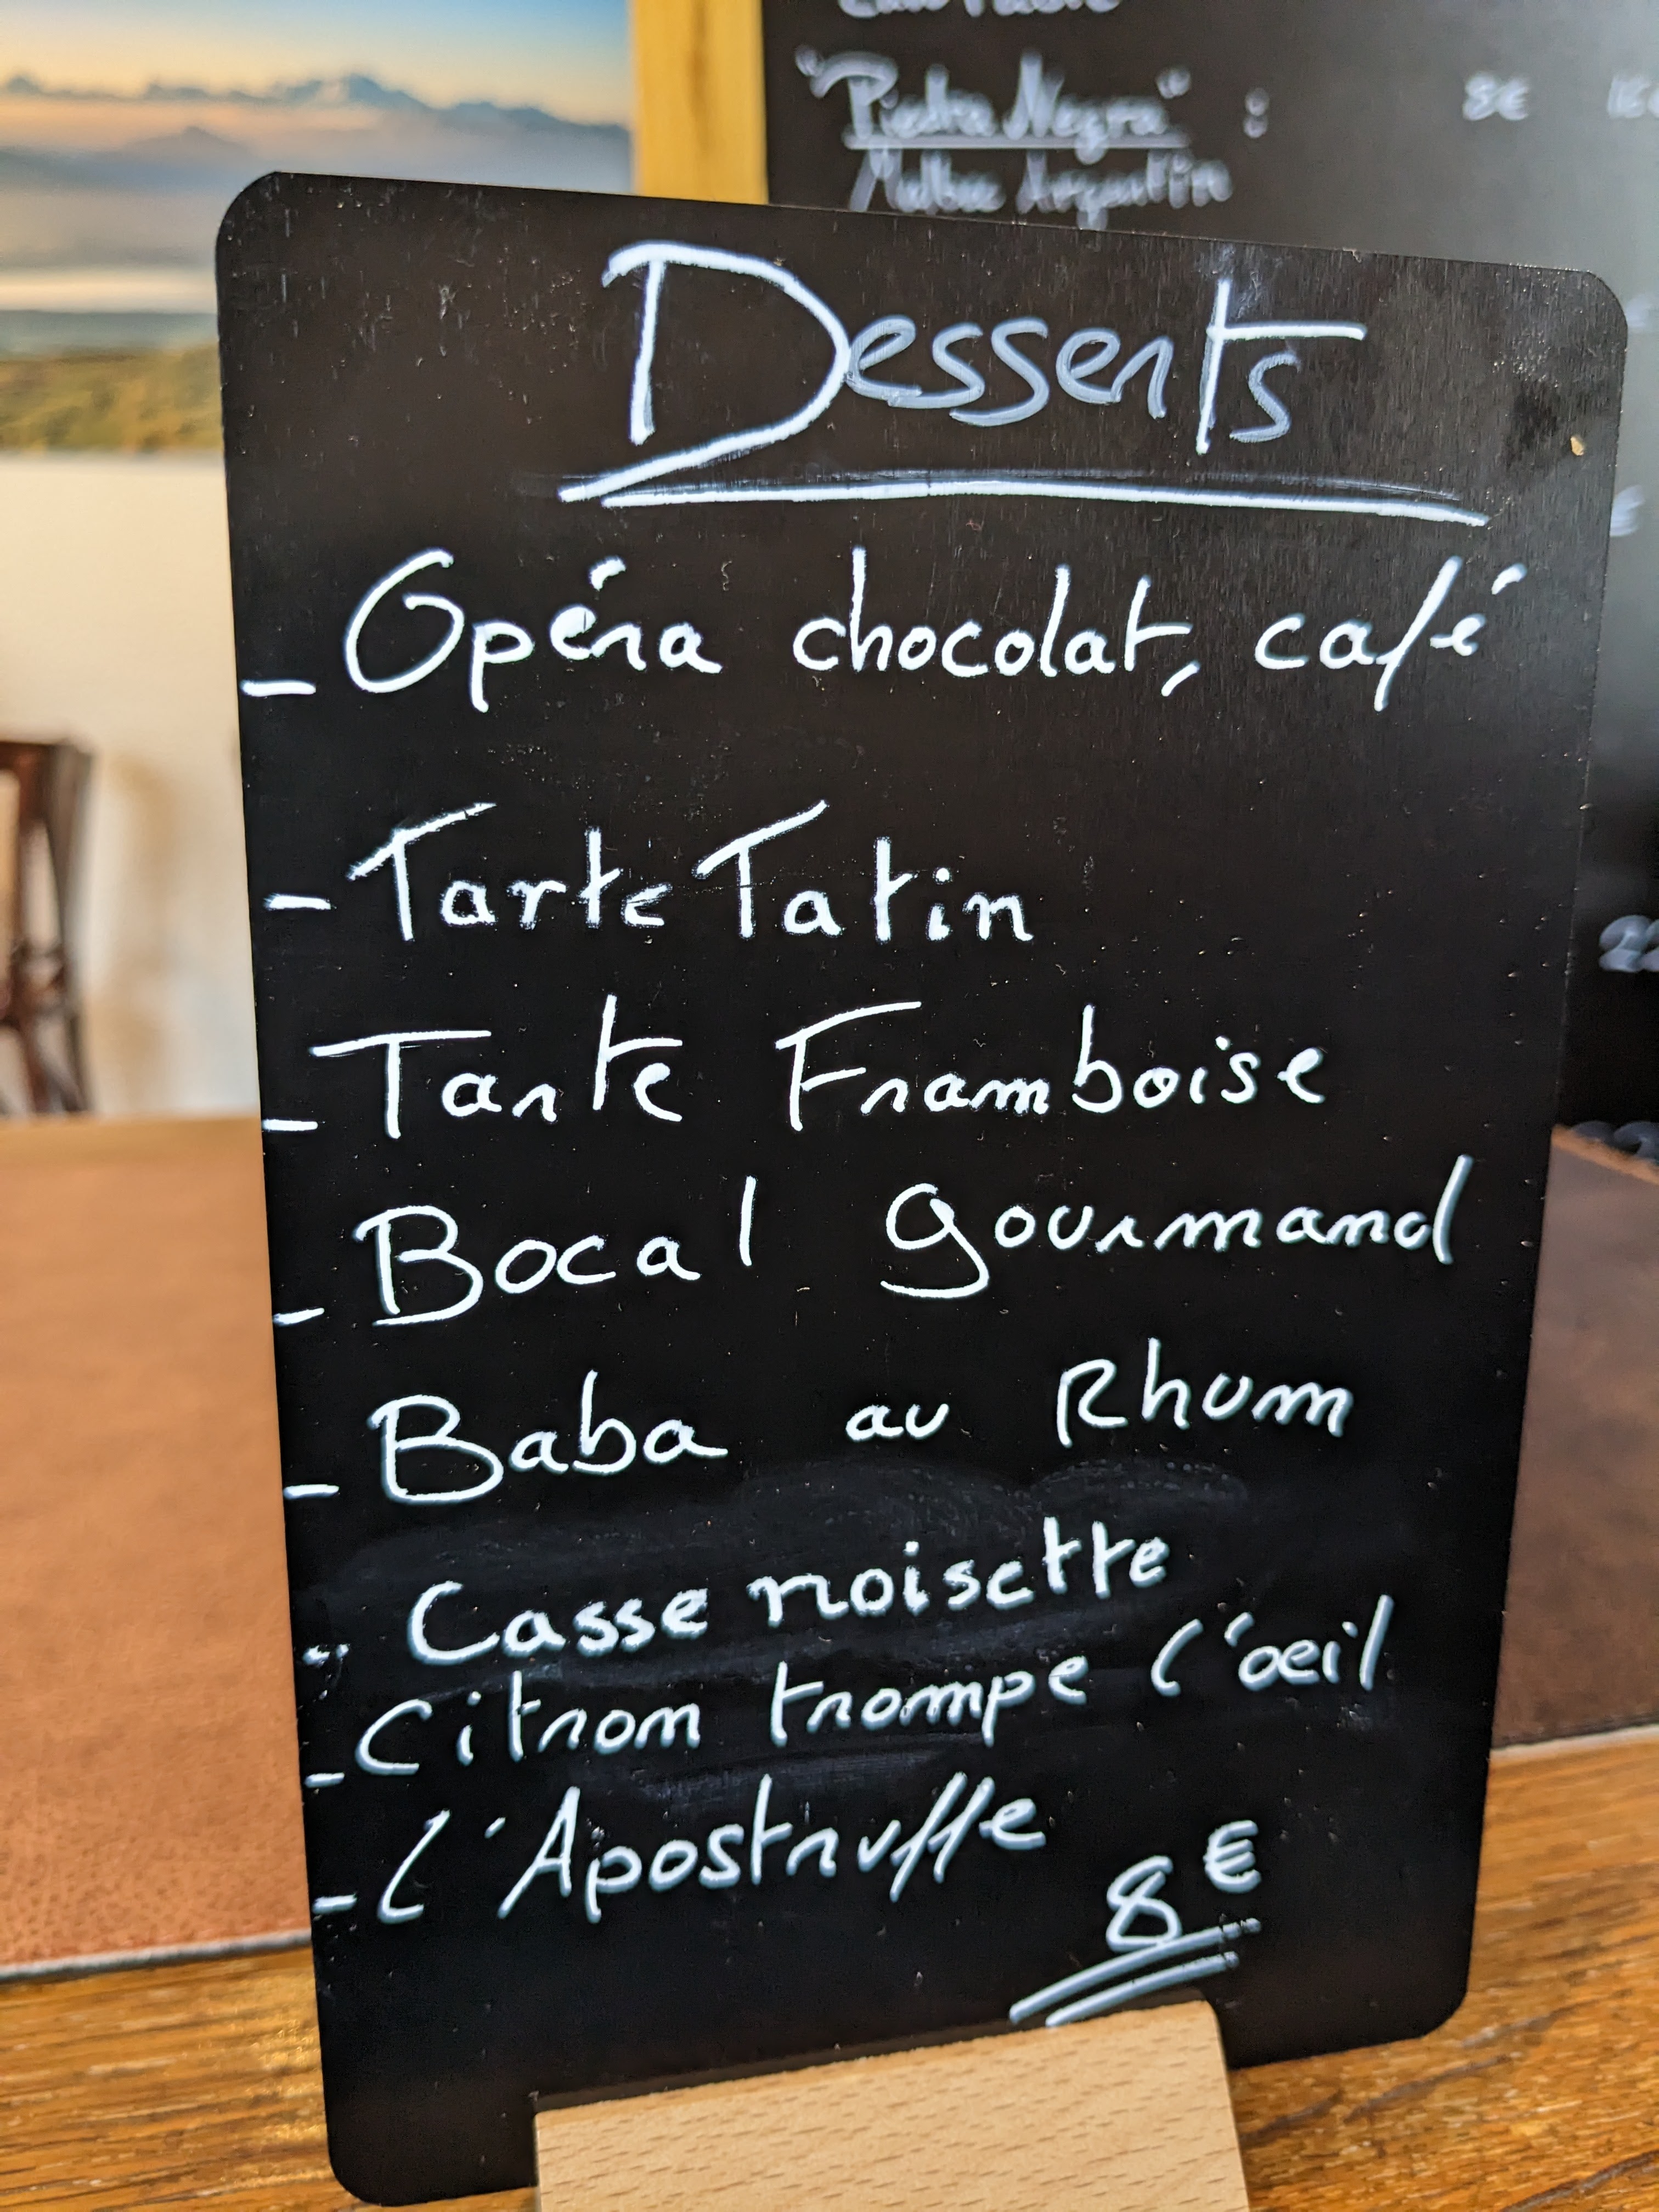 "Piedra Negra" : 8€
Malbec Argentin
Desserts
- Opéra chocolat, café
- Tarte Tatin
- Tarte Framboise
- Bocal gourmand
- Baba au Rhum
- Casse noisette
- Citron trompe l'oeil
- l'Apostruffe
8€